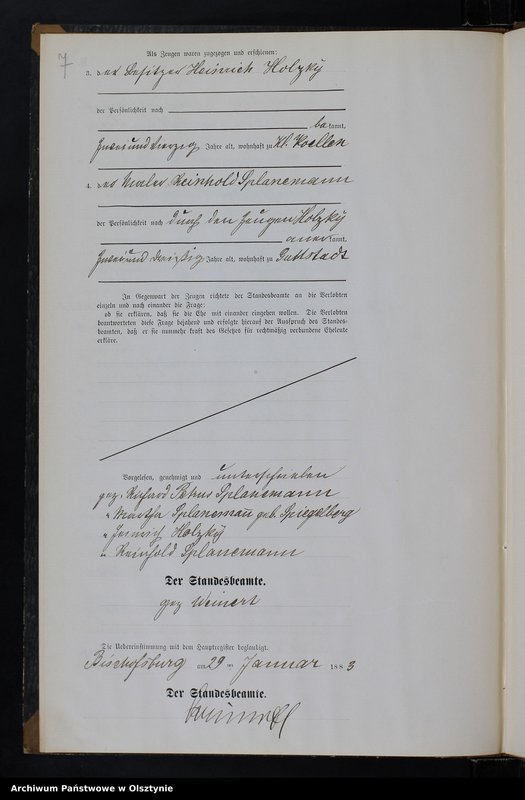 7
Als Zeugen waren zugezogen und erschienen:
3. der Besitzer Heinrich Holzky
der Persönlichkeit nach
bekannt,
zweiundvierzig Jahre alt, wohnhaft zu Kl. Koellen
4. der Maler Reinhold Splanemann
der Persönlichkeit nach durch den Zeugen Holzky
anerkannt,
zweiunddreißig Jahre alt, wohnhaft zu Guttstadt
In Gegenwart der Zeugen richtete der Standesbeamte an die Verlobten
einzeln und nach einander die Frage:
ob sie erklären, daß sie die Ehe mit einander eingehen wollen. Die Verlobten
beantworteten diese Frage bejahend und erfolgte hierauf der Ausspruch des Standes-
beamten, daß er sie nunmehr kraft des Gesetzes für rechtmäßig verbundene Eheleute
erkläre.
Vorgelesen, genehmigt und unterschrieben
gez. Richard Petrus Splanemann
" Martha Splanemann geb. Spiegelberg
" Heinrich Holzky
" Reinhold Splanemann
Der Standesbeamte.
gez Weinert
Die Uebereinstimmung mit dem Hauptregister beglaubigt.
Bischofsburg am 29 ten Januar 1883
Der Standesbeamte.
Archiwum Państwowe w Olsztynie